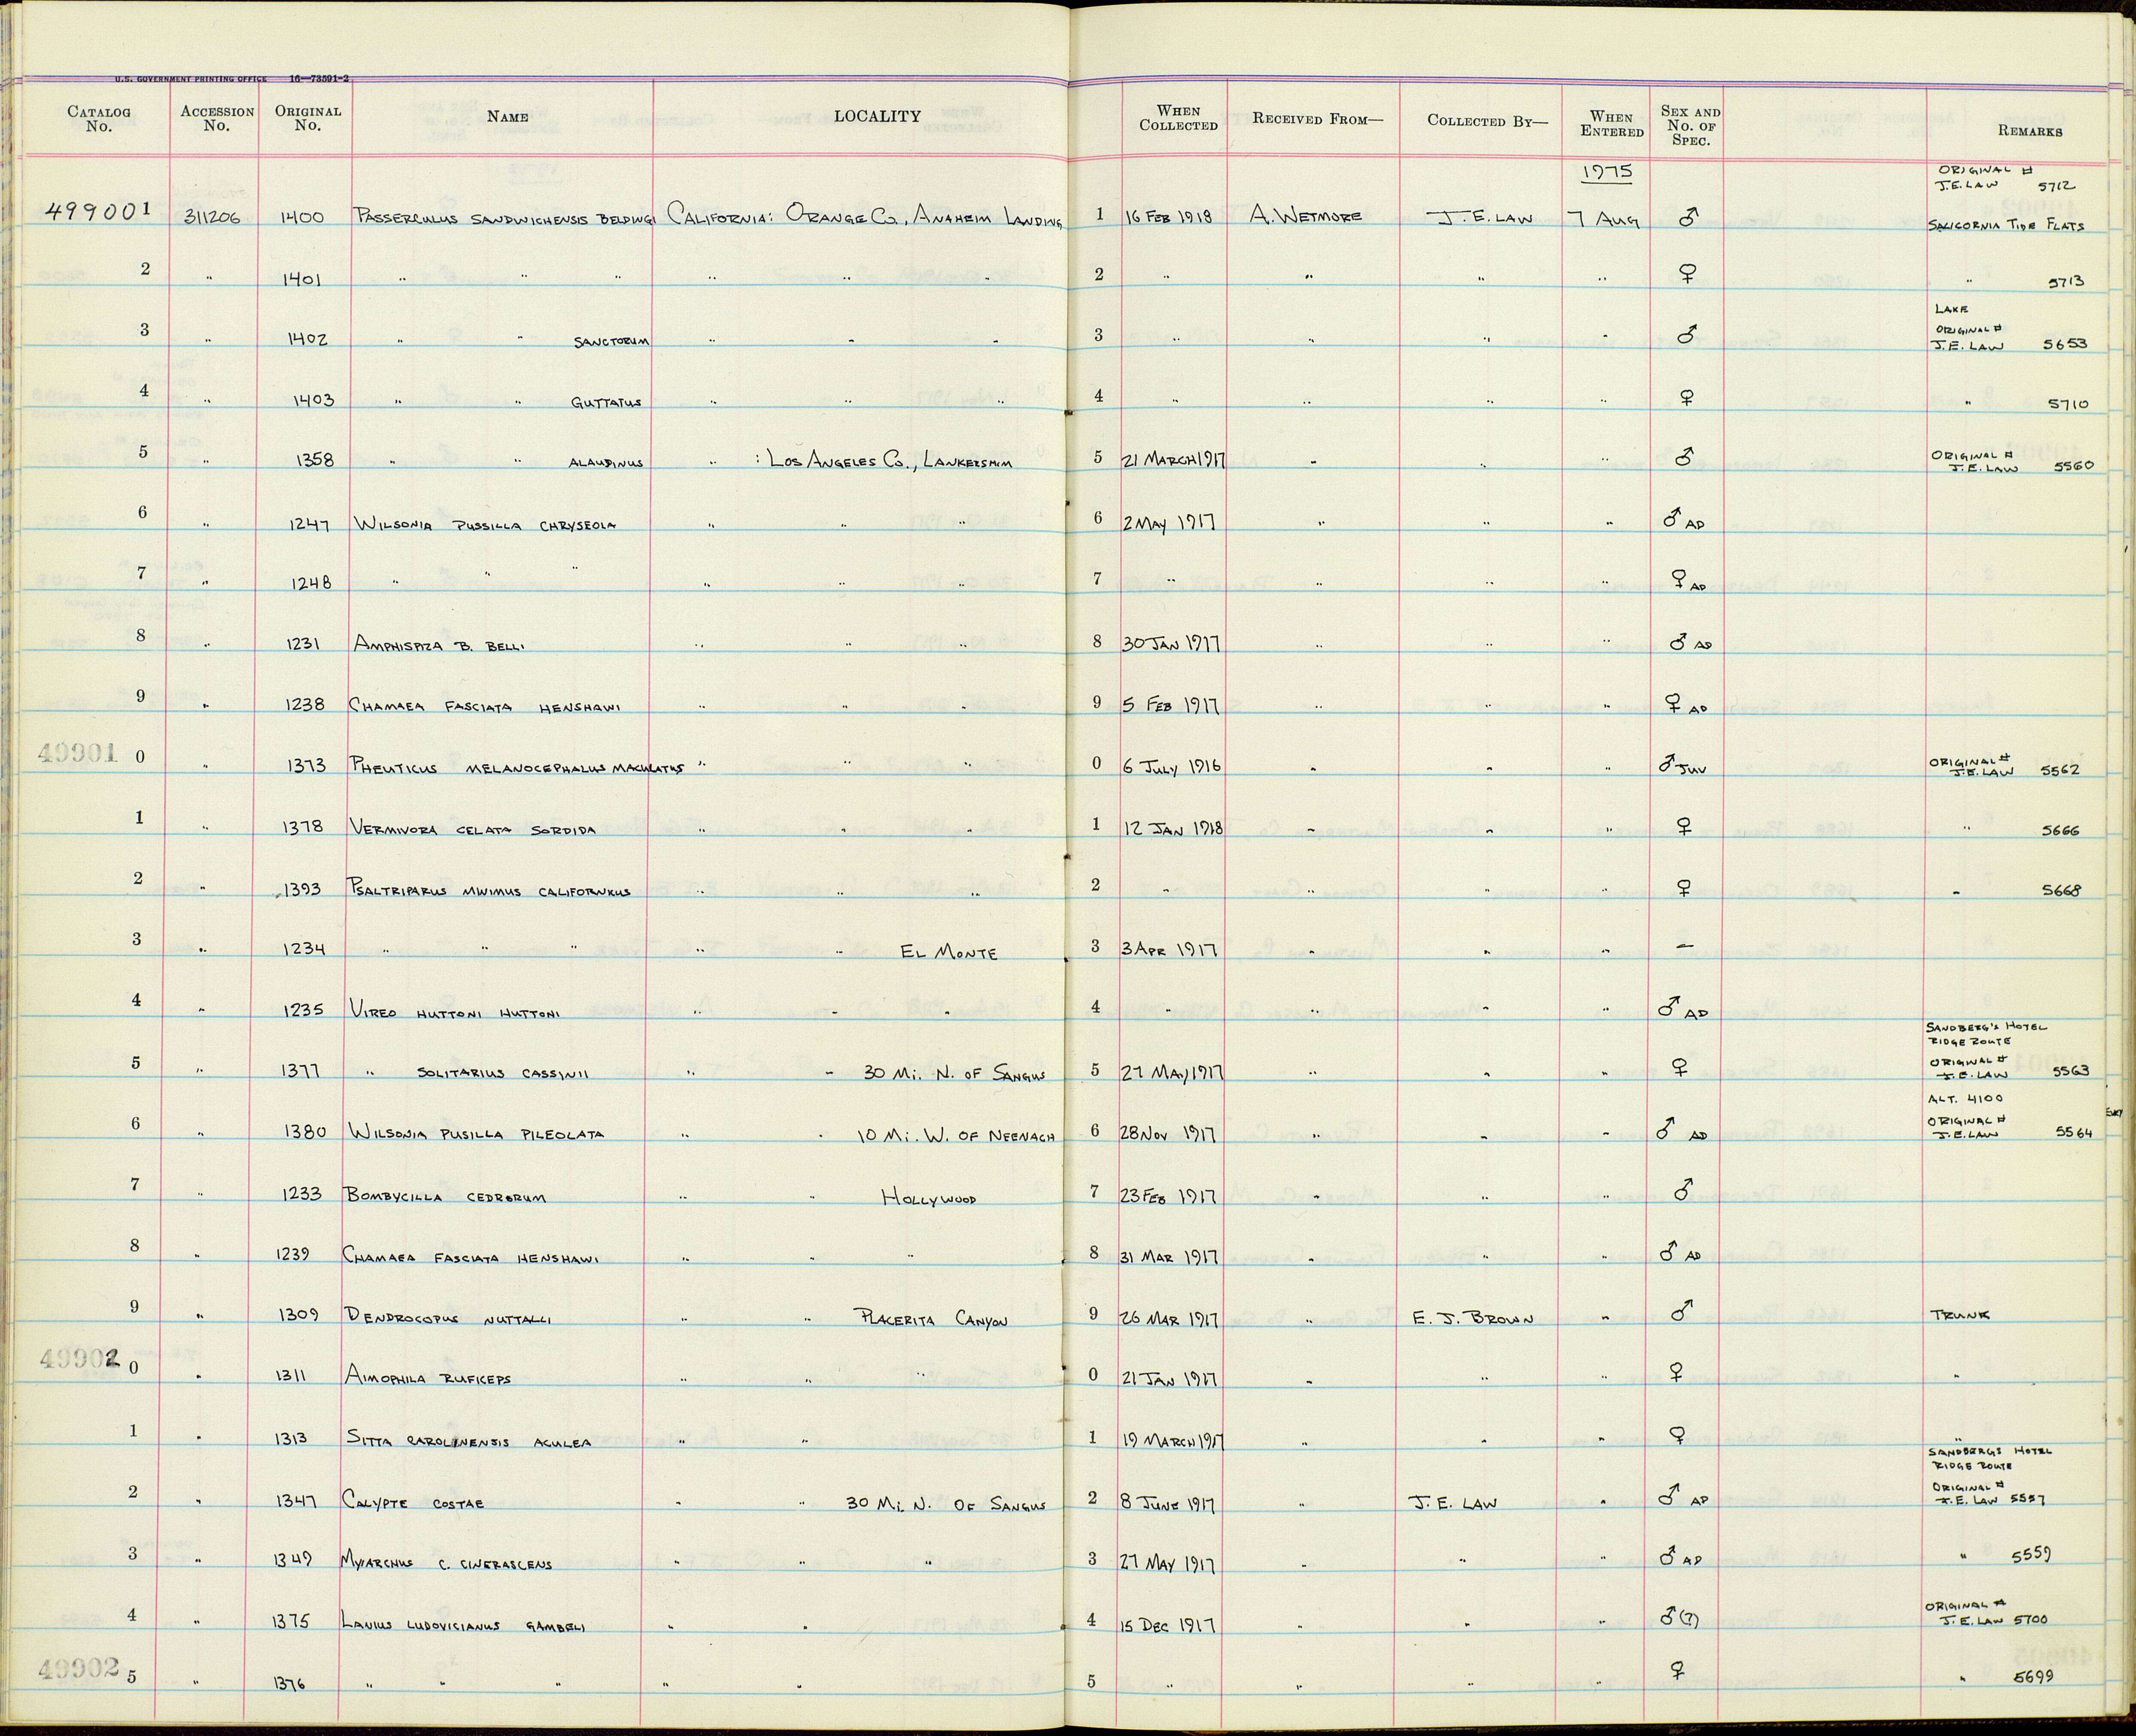 U.S. GOVERNMENT PRINTING OFFICE 16—73591-2
CATALOG No. ACCESSION No. ORIGINAL No. NAME LOCALITY WHEN COLLECTED RECEIVED FROM— COLLECTED BY— WHEN ENTERED SEX AND No. OF SPEC. REMARKS
1975 ORIGINAL #
J.E. LAW 5712
499001 311206 1400 PASSERCULUS SANDWICHENSIS BELDINGI CALIFORNIA: ORANGE CO., ANAHEIM LANDING 1 16 FEB 1918 A. WETMORE J.E. LAW 7 AUG ♂ SALICORNIA TIDE FLATS
2 " 1401 " " " " " " 2 " " " " ♀ " 5713
LAKE
3 " 1402 " " SANCTORUM " " " 3 " " " " ♂ ORIGINAL # J.E. LAW 5653
4 " 1403 " " GUTTATUS " " " 4 " " " " ♀ " 5710
5 " 1358 " " ALAUDINUS " : LOS ANGELES CO., LANKERSHIM 5 21 MARCH 1917 " " " ♂ ORIGINAL # J.E. LAW 5560
6 " 1247 WILSONIA PUSSILLA CHRYSEOLA " " " 6 2 MAY 1917 " " " ♂ AD
7 " 1248 " " " " " " 7 " " " " ♀ AD
8 " 1231 AMPHISPIZA B. BELLI " " " 8 30 JAN 1917 " " " ♂ AD
9 " 1238 CHAMAEA FASCIATA HENSHAWI " " " 9 5 FEB 1917 " " " ♀ AD
49901 0 " 1373 PHEUTICUS MELANOCEPHALUS MACULATUS " " " 0 6 JULY 1916 " " " ♂ JUV ORIGINAL # J.E. LAW 5562
1 " 1378 VERMIVORA CELATA SORDIDA " " " 1 12 JAN 1918 " " " ♀ " 5666
2 " 1393 PSALTRIPARUS MINIMUS CALIFORNICUS " " " 2 " " " " ♀ " 5668
3 " 1234 " " " " " EL MONTE 3 3 APR 1917 " " " —
4 " 1235 VIREO HUTTONI HUTTONI " " " 4 " " " " ♂ AD
SANDBERG'S HOTEL
RIDGE ROUTE
5 " 1377 " SOLITARIUS CASSINII " " 30 MI. N. OF SANGUS 5 27 MAY 1917 " " " ♀ ORIGINAL # J.E. LAW 5563
ALT. 4100
6 " 1380 WILSONIA PUSILLA PILEOLATA " " 10 MI. W. OF NEENACH 6 28 NOV 1917 " " " ♂ AD ORIGINAL # J.E. LAW 5564
7 " 1233 BOMBYCILLA CEDRORUM " " HOLLYWOOD 7 23 FEB 1917 " " " ♂
8 " 1239 CHAMAEA FASCIATA HENSHAWI " " " 8 31 MAR 1917 " " " ♂ AD
9 " 1309 DENDROCOPUS NUTTALLI " " PLACERITA CANYON 9 26 MAR 1917 " E. J. BROWN " ♂ TRUNK
49902 0 " 1311 AIMOPHILA RUFICEPS " " " 0 21 JAN 1917 " " " ♀ "
1 " 1313 SITTA CAROLINENSIS ACULEA " " 1 19 MARCH 1917 " " " ♀ "
SANDBERGS HOTEL
RIDGE ROUTE
2 " 1347 CALYPTE COSTAE " " 30 MI. N. OF SANGUS 2 8 JUNE 1917 " J.E. LAW " ♂ AD ORIGINAL # J.E. LAW 5557
3 " 1349 MYIARCHUS C. CINERASCENS " " " 3 27 MAY 1917 " " " ♂ AD " 5559
4 " 1375 LANIUS LUDOVICIANUS GAMBELI " " 4 15 DEC 1917 " " " ♂(?) ORIGINAL # J.E. LAW 5700
49902 5 " 1376 " " " " " 5 " " " " ♀ " 5699